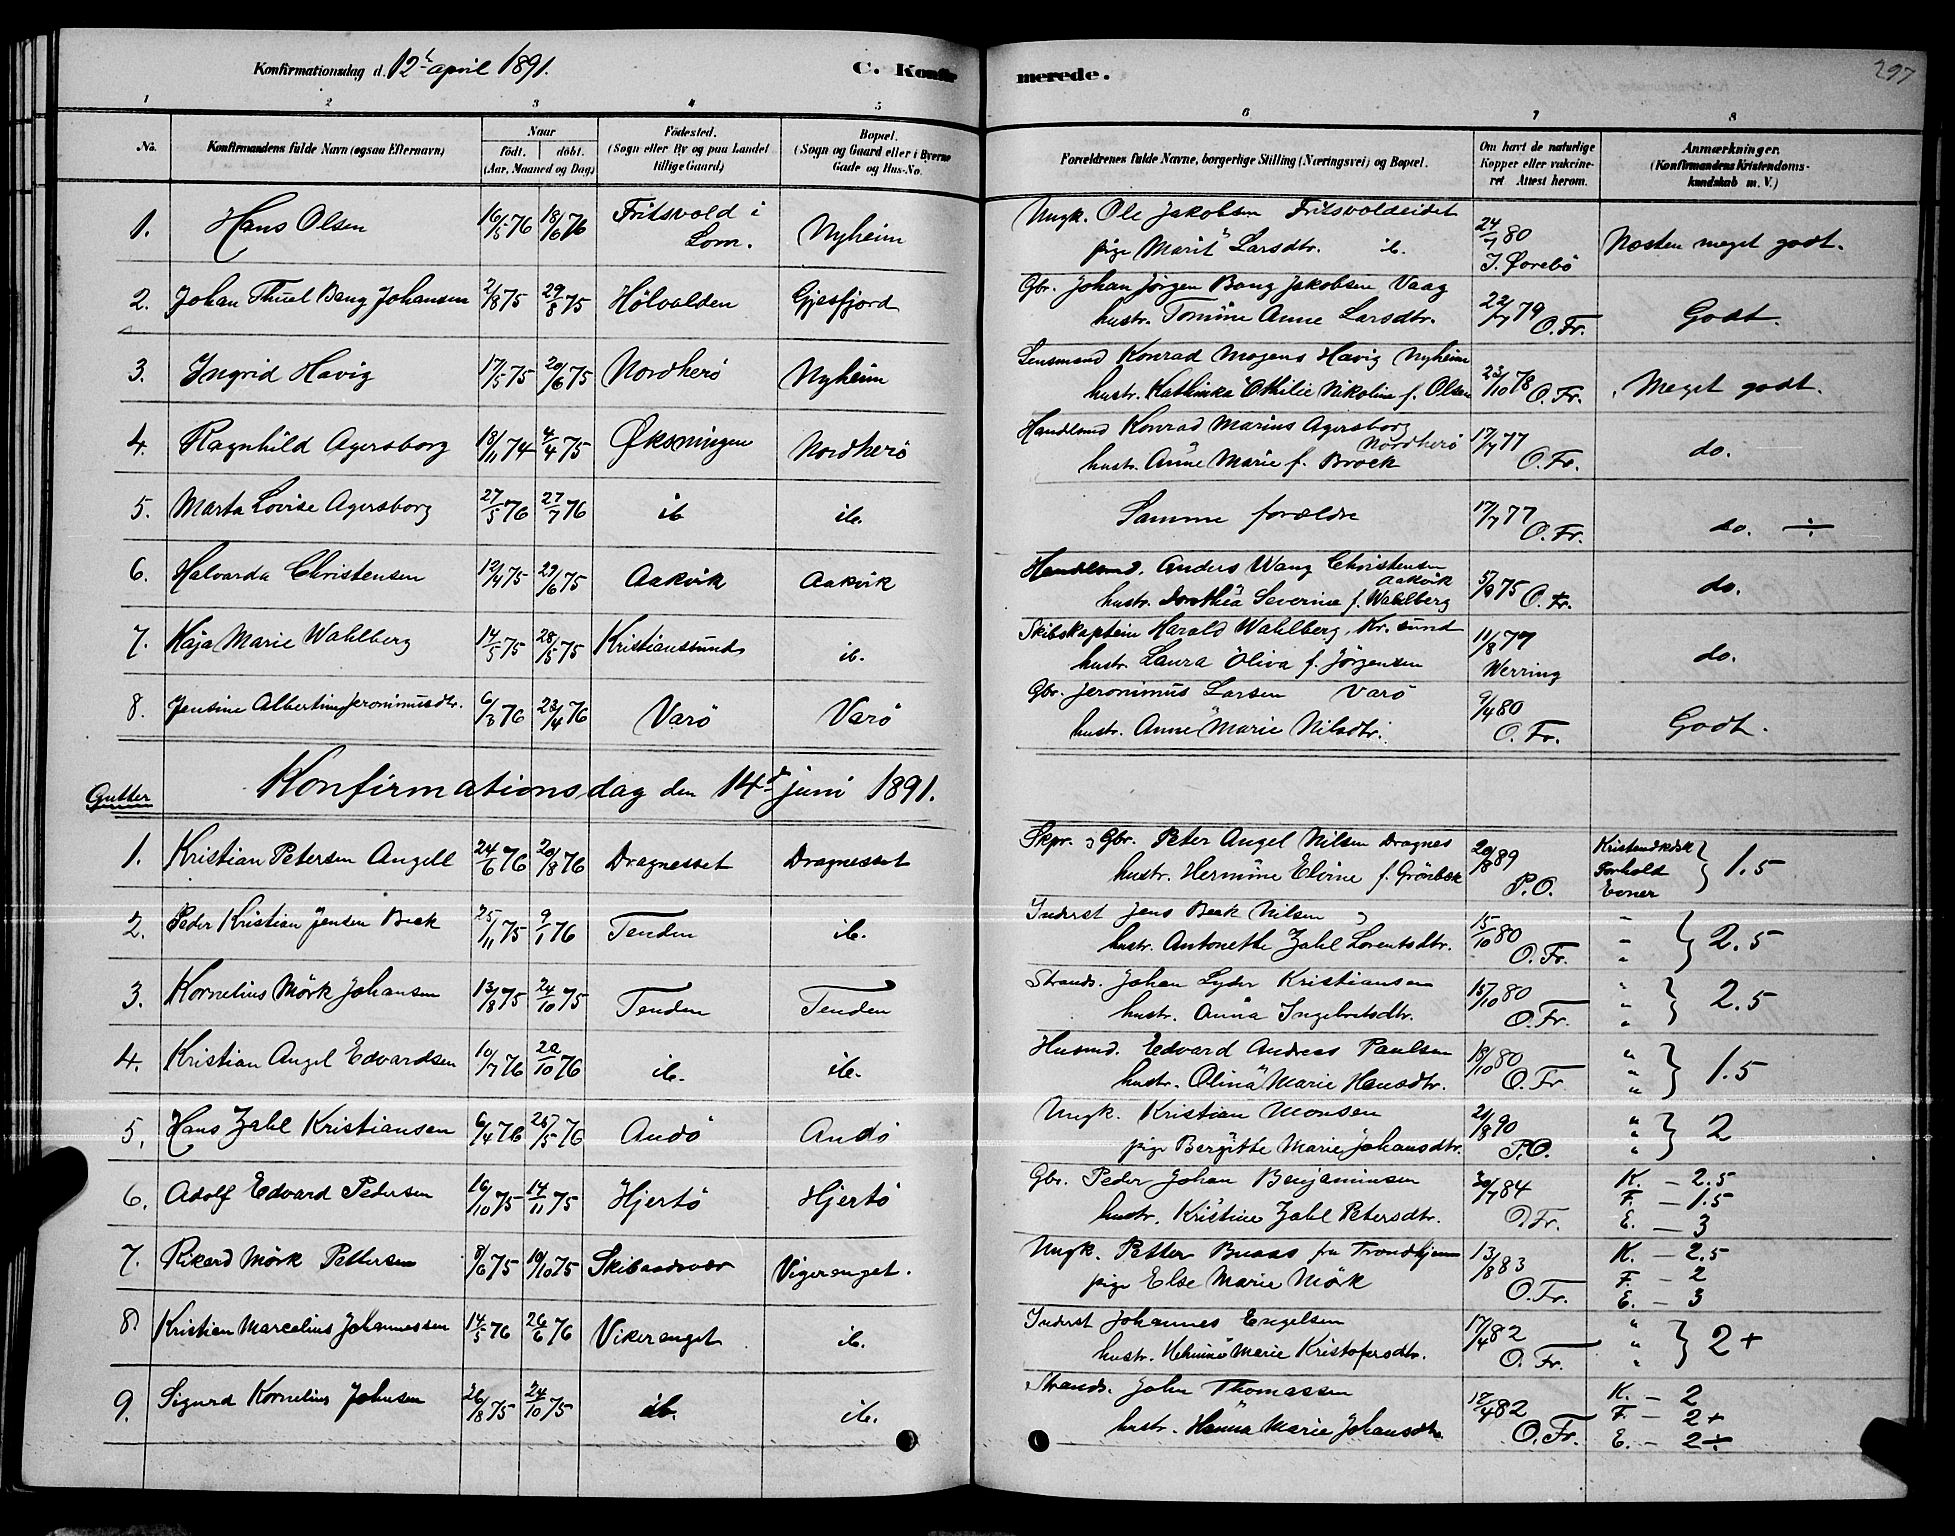 Konfirmationsdag d. 12t april 1891. C. Konfirmerede. 297
1 2 3 4 5 6 7 8
No. Konfirmandens fulde Navn (ogsaa Efternavn) Naar födt. döbt. (Aar, Maaned og Dag) Födested. (Sogn eller By og paa Landet tillige Gaard) Bopæl. (Sogn og Gaard eller i Byerne Gade og Hus-No. Forældrenes fulde Navne, borgerlige Stilling (Næringsvei) og Bopæl. Om havt de naturlige Kopper eller vakcineret Attest herom. Anmærkninger. (Konfirmandens Kristendomskundskab m. V.)
1. Hans Olsen 16/5 76 18/6 76 Fritsvold i Lom. Nyheim Ungk. Ole Jakobsen Fritsvoldeidet 24/7 80 Næsten meget godt.
pige Marit Larsdtr. ib. J. Ørebö
2. Johan Thuel Bang Johansen 2/8 75 29/8 75 Hölvalden Gjesfjord Gbr. Johan Jörgen Bang Jakobsen Vaag 22/7 79 Godt.
hustr. Tomine Anne Larsdtr. O.Fr.
3. Ingrid Havig 17/5 75 20/6 75 Nordherö Nyheim Lensmand Konrad Mogens Havig Nyheim 23/10 78 Meget godt.
hustr. Kathinka Othilie Nikoline f. Olsen O.Fr.
4. Ragnhild Agersborg 18/11 74 4/4 75 Øksningen Nordherö Handlsmd Konrad Marius Agersborg Nordherö 17/7 77 do.
hustr. Anne Marie f. Brock O.Fr.
5. Marta Lovise Agersborg 27/5 76 27/7 76 ib ib. Samme forældre 17/7 77 O.Fr. do. ÷
6. Halvarda Christensen 12/4 75 29/6 75 Aakvik Aakvik Handlsmd. Anders Wang Christensen Aakvik 5/9 75 O.Fr. do.
hustr. Dorthea Severine f. Wahlberg
7. Kaja Marie Wahlberg 14/5 75 28/5 75 Kristianssund ib. Skibskaptein Harald Wahlberg, Kr. sund 11/8 77 do.
hustr. Laura Oliva f. Jörgensen Werring
8. Jensine Albertine Jeronimusdtr. 6/3 76 23/4 76 Varö Varö Gbr. Jeronimus Larsen Varö 9/4 80 Godt.
hustr. Anne Marie Nilsdtr. O.Fr.
Gutter Konfirmationsdag den 14d juni 1891.
1. Kristian Petersen Angell 24/6 76 20/8 76 Dragnesset Dragnesset Skpr. & Gbr. Peter Angel Nilsen Dragnes 20/8 89 Kristendkdsk Forhold Evner } 1.5
hustr. Hermine Elvine f. Grönbek P.O.
2. Peder Kristian Jensen Beck 25/11 75 9/1 76 Tenden ib. Inderst Jens Beck Nilsen 15/10 80 " " " } 2.5
hustr. Antonette Zahl Lorentsdtr. O.Fr.
3. Kornelius Mörk Johansen 13/8 75 24/10 75 Tenden Tenden Strands. Johan Lyder Kristiansen 15/10 80 " " " } 2.5
hustr. Anna Ingebretsdtr. O.Fr.
4. Kristian Angel Edvardsen 10/7 76 20/10 76 ib. ib. Husmd. Edvard Andreas Paulsen 18/10 80 " " " } 1.5
hustr. Olina Marie Hansdtr. O.Fr.
5. Hans Zahl Kristiansen 6/4 76 28/5 76 Andö Andö Ungk. Kristian Monsen 21/8 90 " " " } 2
pige Bergitte Marie Johansdtr. P.O.
6. Adolf Edvard Pedersen 16/10 75 14/11 75 Hjertö Hjertö Gbr. Peder Johan Benjaminsen 30/7 84 K. – 2.5
hustr. Kristine Zahl Petersdtr. O.Fr. F. – 1.5
E. – 3
7. Rikard Mörk Pettersen 8/6 75 10/10 75 Skibaadsvær Vigeranget. Ungk. Petter Buaas fra Trondhjem 13/8 83 K. – 2.5
pige Else Marie Mörk O.Fr. F. – 2
E. – 3
8. Kristian Marcelius Johannessen 14/5 76 26/6 76 Vikeranget ib. Inderst Johannes Engelsen 17/4 82 " " " } 2+
hustr. Marie Kristofersdtr. O.Fr.
9. Sigurd Kornelius Johnsen 26/8 75 24/10 75 ib. ib. Strands. John Thomassen 17/4 82 K. – 2
hustr. Hanna Marie Johansdtr. O.Fr. F – 2+
E. – 2÷